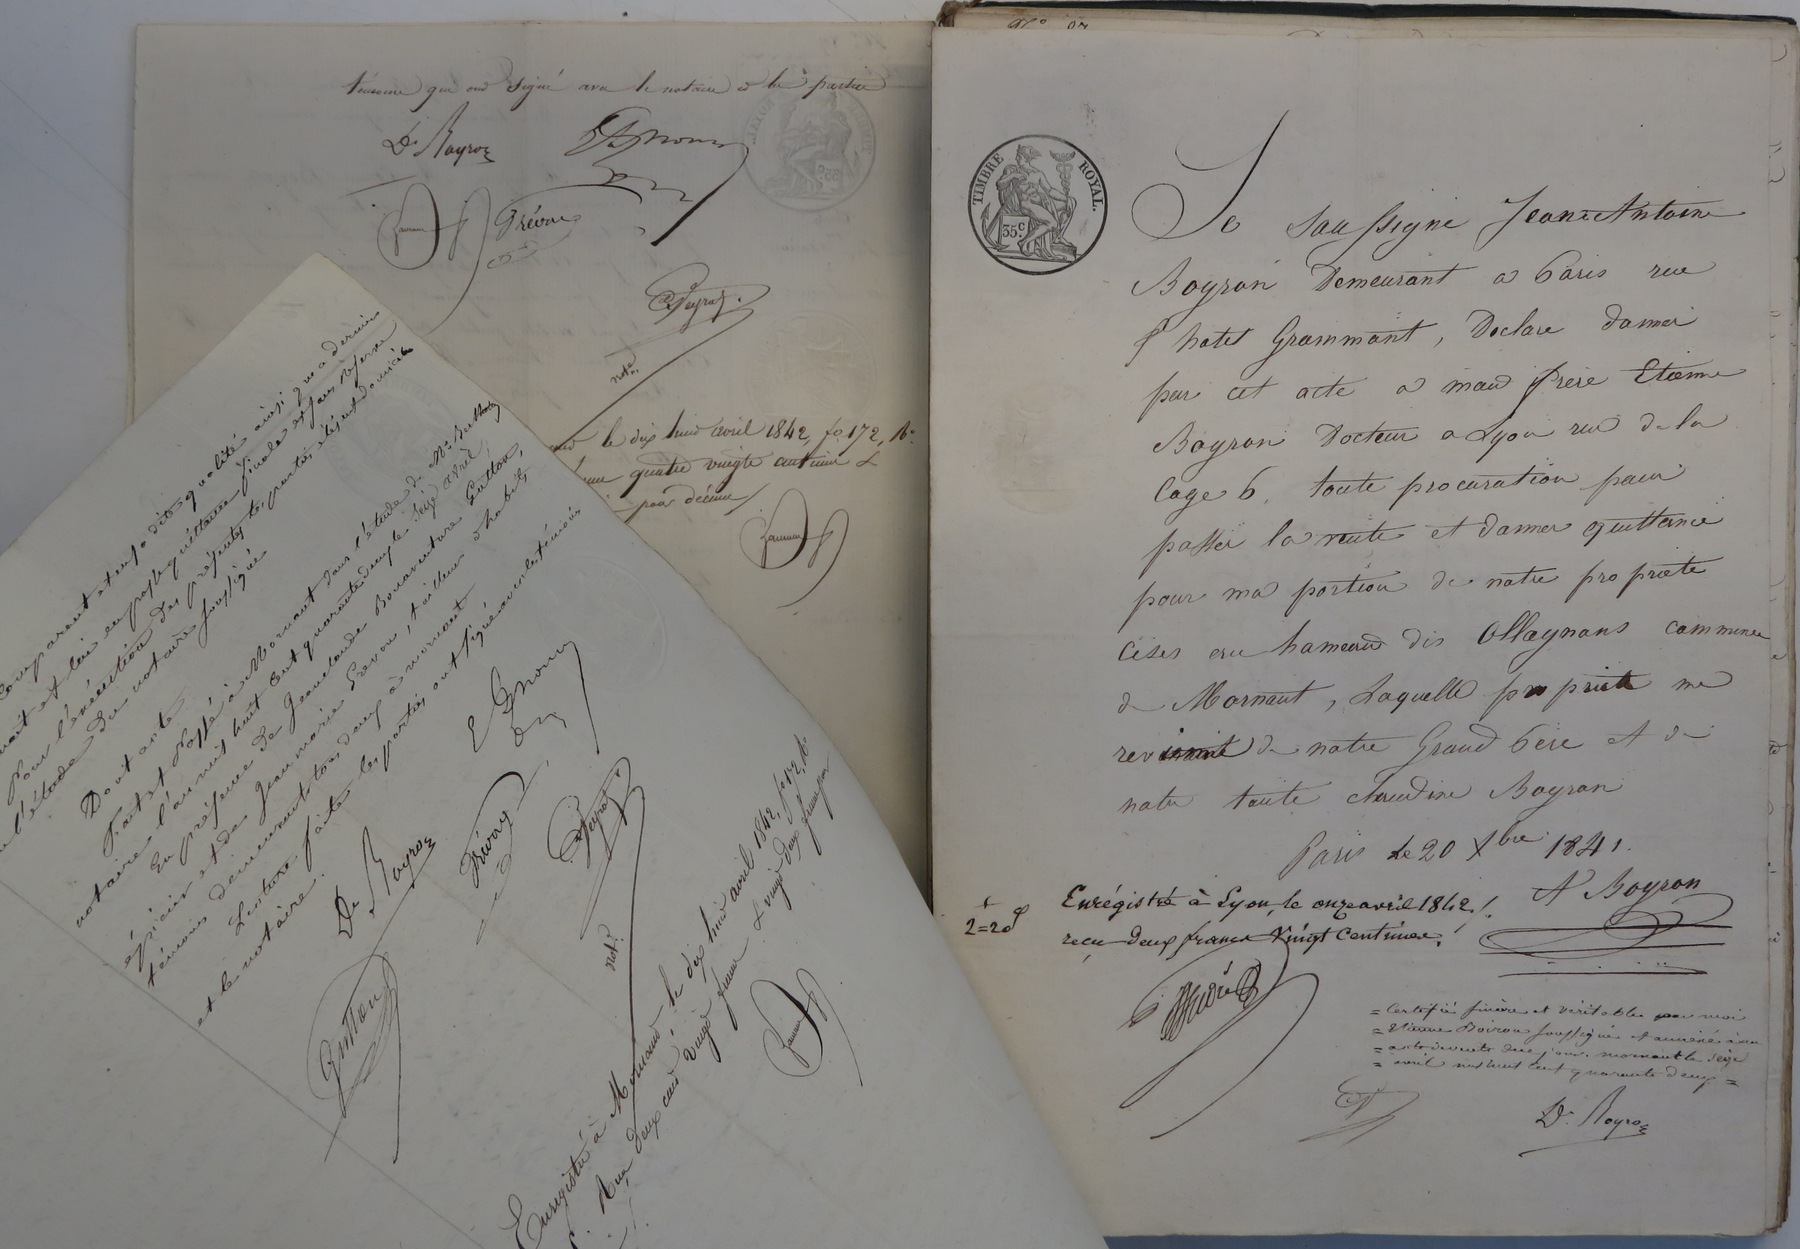 témoins qui ont signé avec le notaire et les parties
Dr Boyron
Trévoux
CPeyrat
not.re
le dix huit avril 1842, fo 172, R.
quatre vingts centimes &
pour décime
TIMBRE ROYAL.
35 c
Je Soussigné Jeane Antoine
Boyron Demeurant a Paris rue
& hotel Grammont, Déclare donner
par cet acte a mon frere Etienne
Boyron Docteur a Lyon rue de la
Cage 6, toute procuration pour
passer la vente et donner quittance
pour ma portion de notre propriete
cises au hameaud des Ollagnons commune
de Mornant, Laquelle propriete me
revient de notre Grand Pere et de
notre tante Claudine Boyron
Paris le 20 Xbre 1841.
A Boyron
Enrégistré à Lyon, le onze avril 1842.
reçu deux francs vingt centimes.
2=20
= Certifié sincère et véritable par moi
= Etienne Boiron soussigné et annexé à un
= acte de vente de ce jour. Mornant le seize
= avril mil huit cent quarante deux =
Dr Boyron
comparant et en sa dite qualité ainsi que a dernier
Pour l'éxécution des présentes, les parties élisent domicile
en l'étude du notaire soussigné
Dont acte
Fait et Passé à Mornant dans l'étude de Me
notaire l'an mil huit cent quarante deux le seize avril,
En présence de Jean claude Bonaventure Gutton,
épicier et de Jean marie Trévou, tailleur d'habits
témoins demeurant tous deux à mornant
Lecture faite les parties ont signé avec les témoins
et le notaire.
Dr Boyron
Trévoux
CPeyrat
Gutton
not.re
Enregistré à Mornant le dix huit avril 1842, fo 172, R.
Reçu deux cent vingt francs & vingt deux francs pour